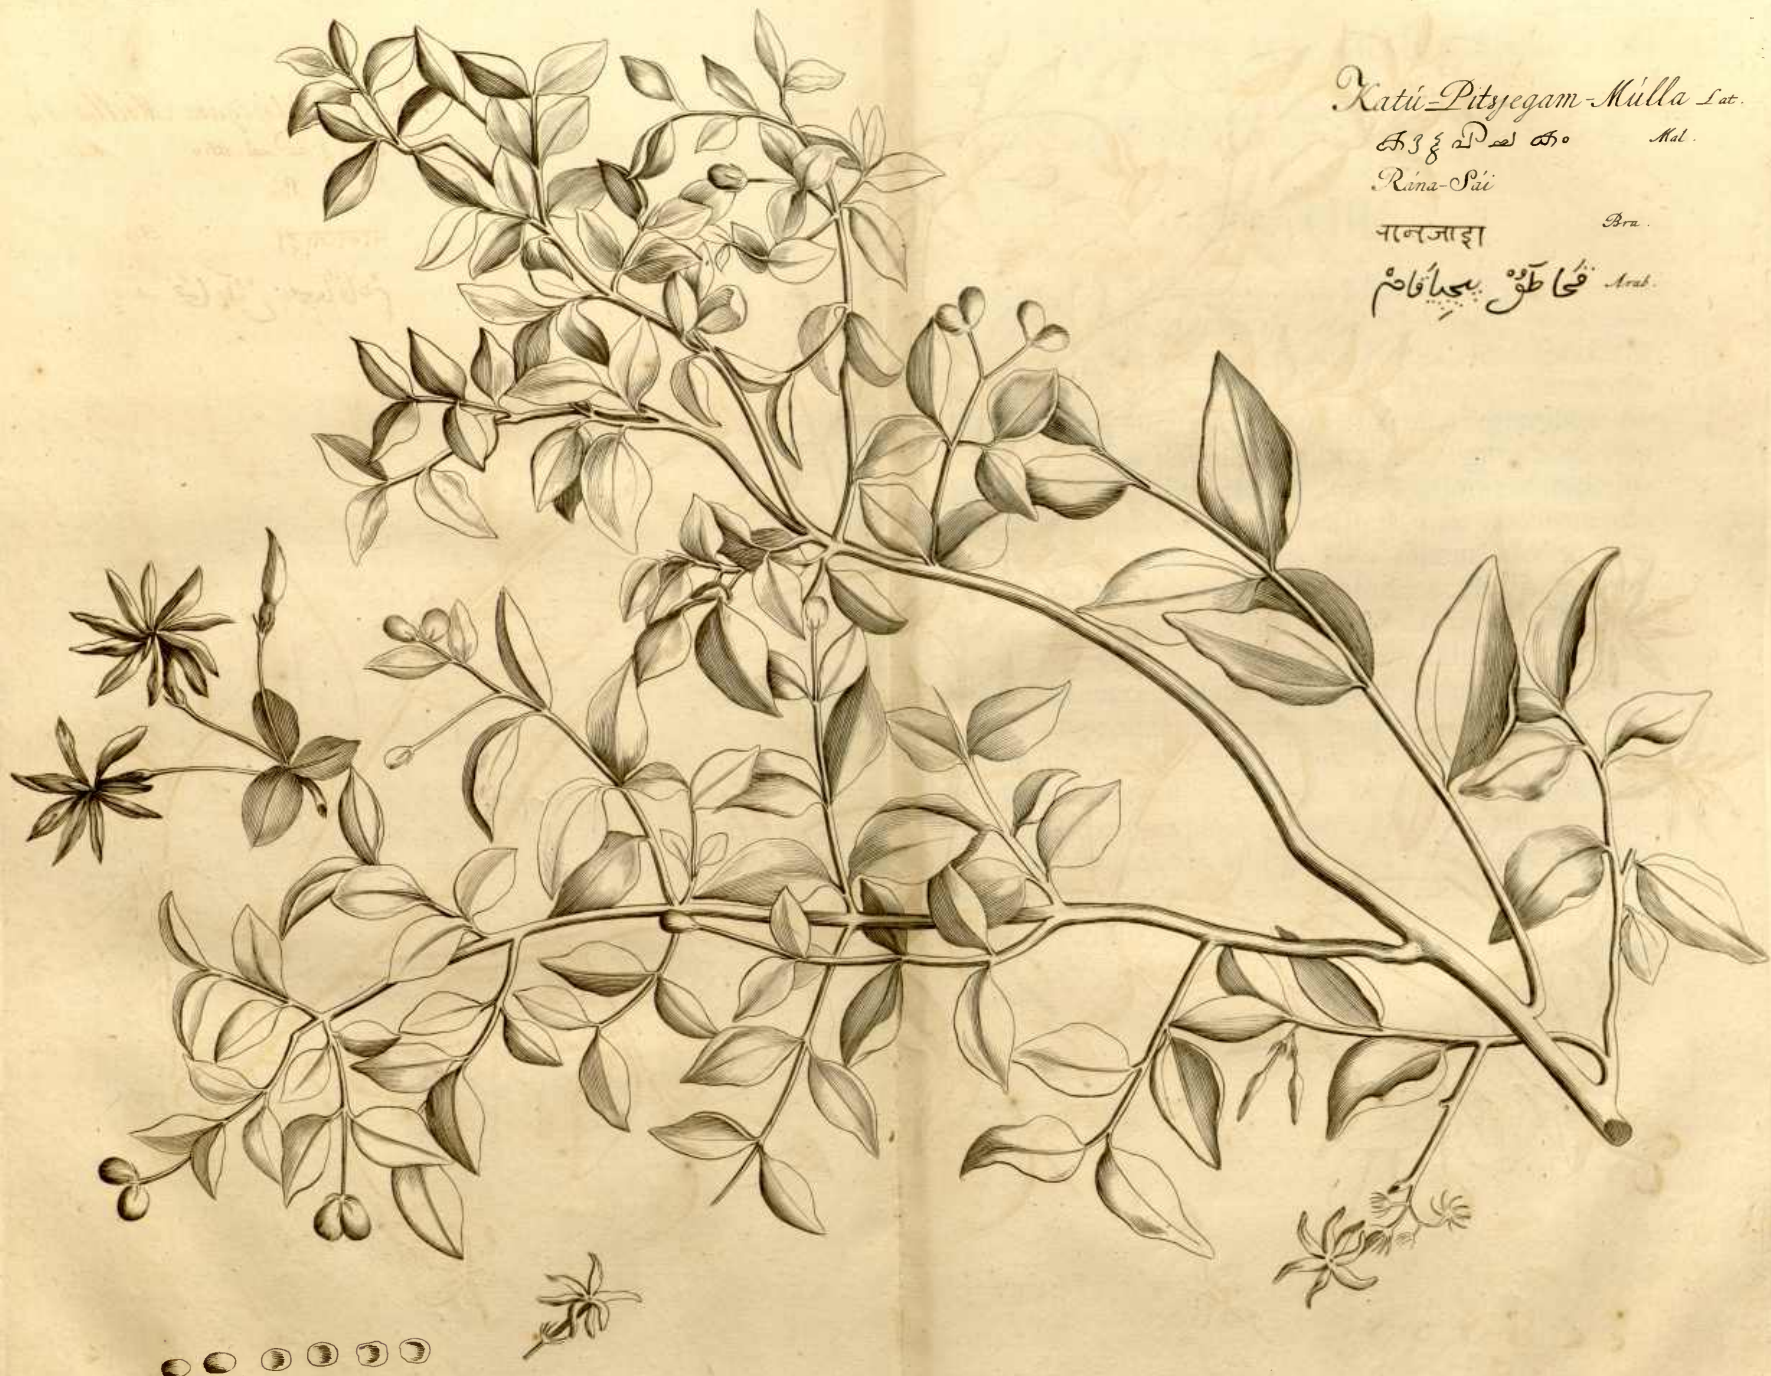 Katú-Pitsjegam-Múlla Lat.
കാട്ടുപിചകം Mal.
Rána-Sái
रानजाइ Bra.
Arab.